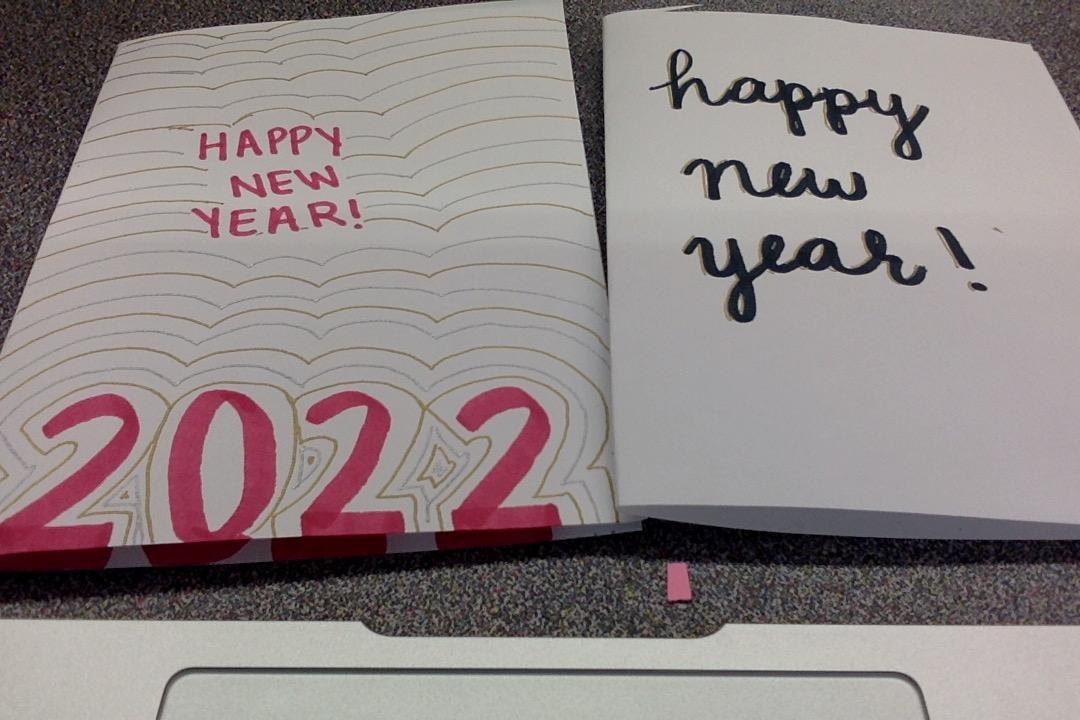 HAPPY
NEW
YEAR!
2022
happy
new
year!